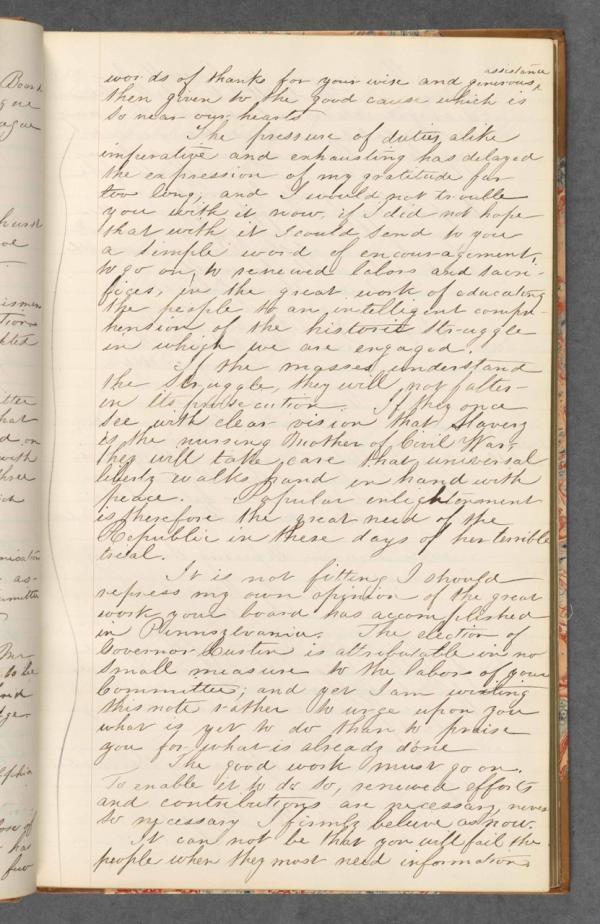 Board
gue
ague
hurst
ismen
tion
that
d on
with
three
nication
as
mmittee
Mr
to be
and
dge
lphia
has
few
assistance
words of thanks for your wise and generous
then given to the good cause which is
so near our hearts
The pressure of duties alike
imperative and exhausting has delayed
the expression of my gratitude far
too long, and I would not trouble
you with it now, if I did not hope
that with it I could send to you
a simple word of encouragement,
to go on, to renewed labors and sacri-
fices, in the great work of educating
the people to an intelligent compre-
hension of the historic struggle
in which we are engaged.
If the masses understand
the struggle, they will not falter
in its prosecution. If they once
see with clear vision that Slavery
is the nursing Mother of Civil War,
they will take care that universal
liberty walks hand in hand with
peace. Popular enlightenment
is therefore the great need of the
Republic in these days of her terrible
trial.
It is not fitting I should
repress my own opinion of the great
work your board has accomplished
in Pennsylvania. The election of
Governor Curtin is attributable in no
small measure to the labors of your
Committee; and yet I am writing
this note rather to urge upon you
what is yet to do than to praise
you for what is already done
The good work must go on.
To enable it to do so, renewed efforts
and contributions are necessary, never
so necessary I firmly believe as now.
It can not be that you will fail the
people when they most need information